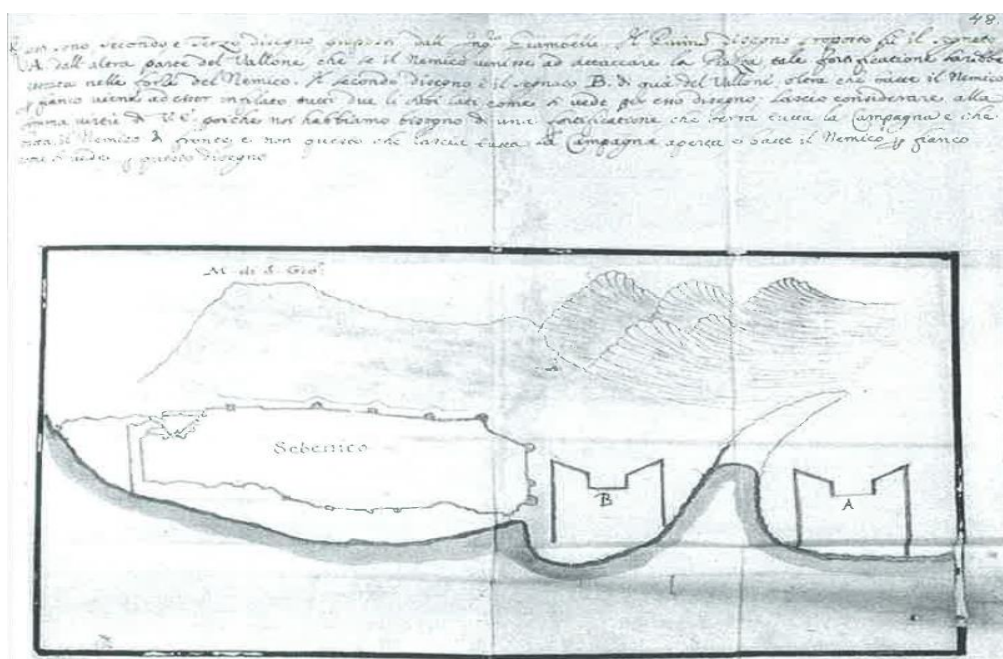 48.
sono, secondo e Terzo disegno proposti dall' Il Primo disegno proposto fù il segnato
A. dall'altra parte del Vallone che se il Nemico venisse ad attaccare la Piazza tale fortificatione sarebbe
nelle forze del Nemico. Il secondo disegno è il segnato B. di quà del Vallone, oltra che batte il Nemico
fianco viene ad esser infilato tutti due li lati come si vede per esso disegno; lascio considerare alla
virtù di V.E. poiche noi habbiamo bisogno di una fortificatione che tutta la Campagna e che
il Nemico di fronte, e non questo che lascia tutta la Campagna aperta e batte il Nemico fianco
si vede questo disegno
M. di S. Gio:
Sebenico
B
A